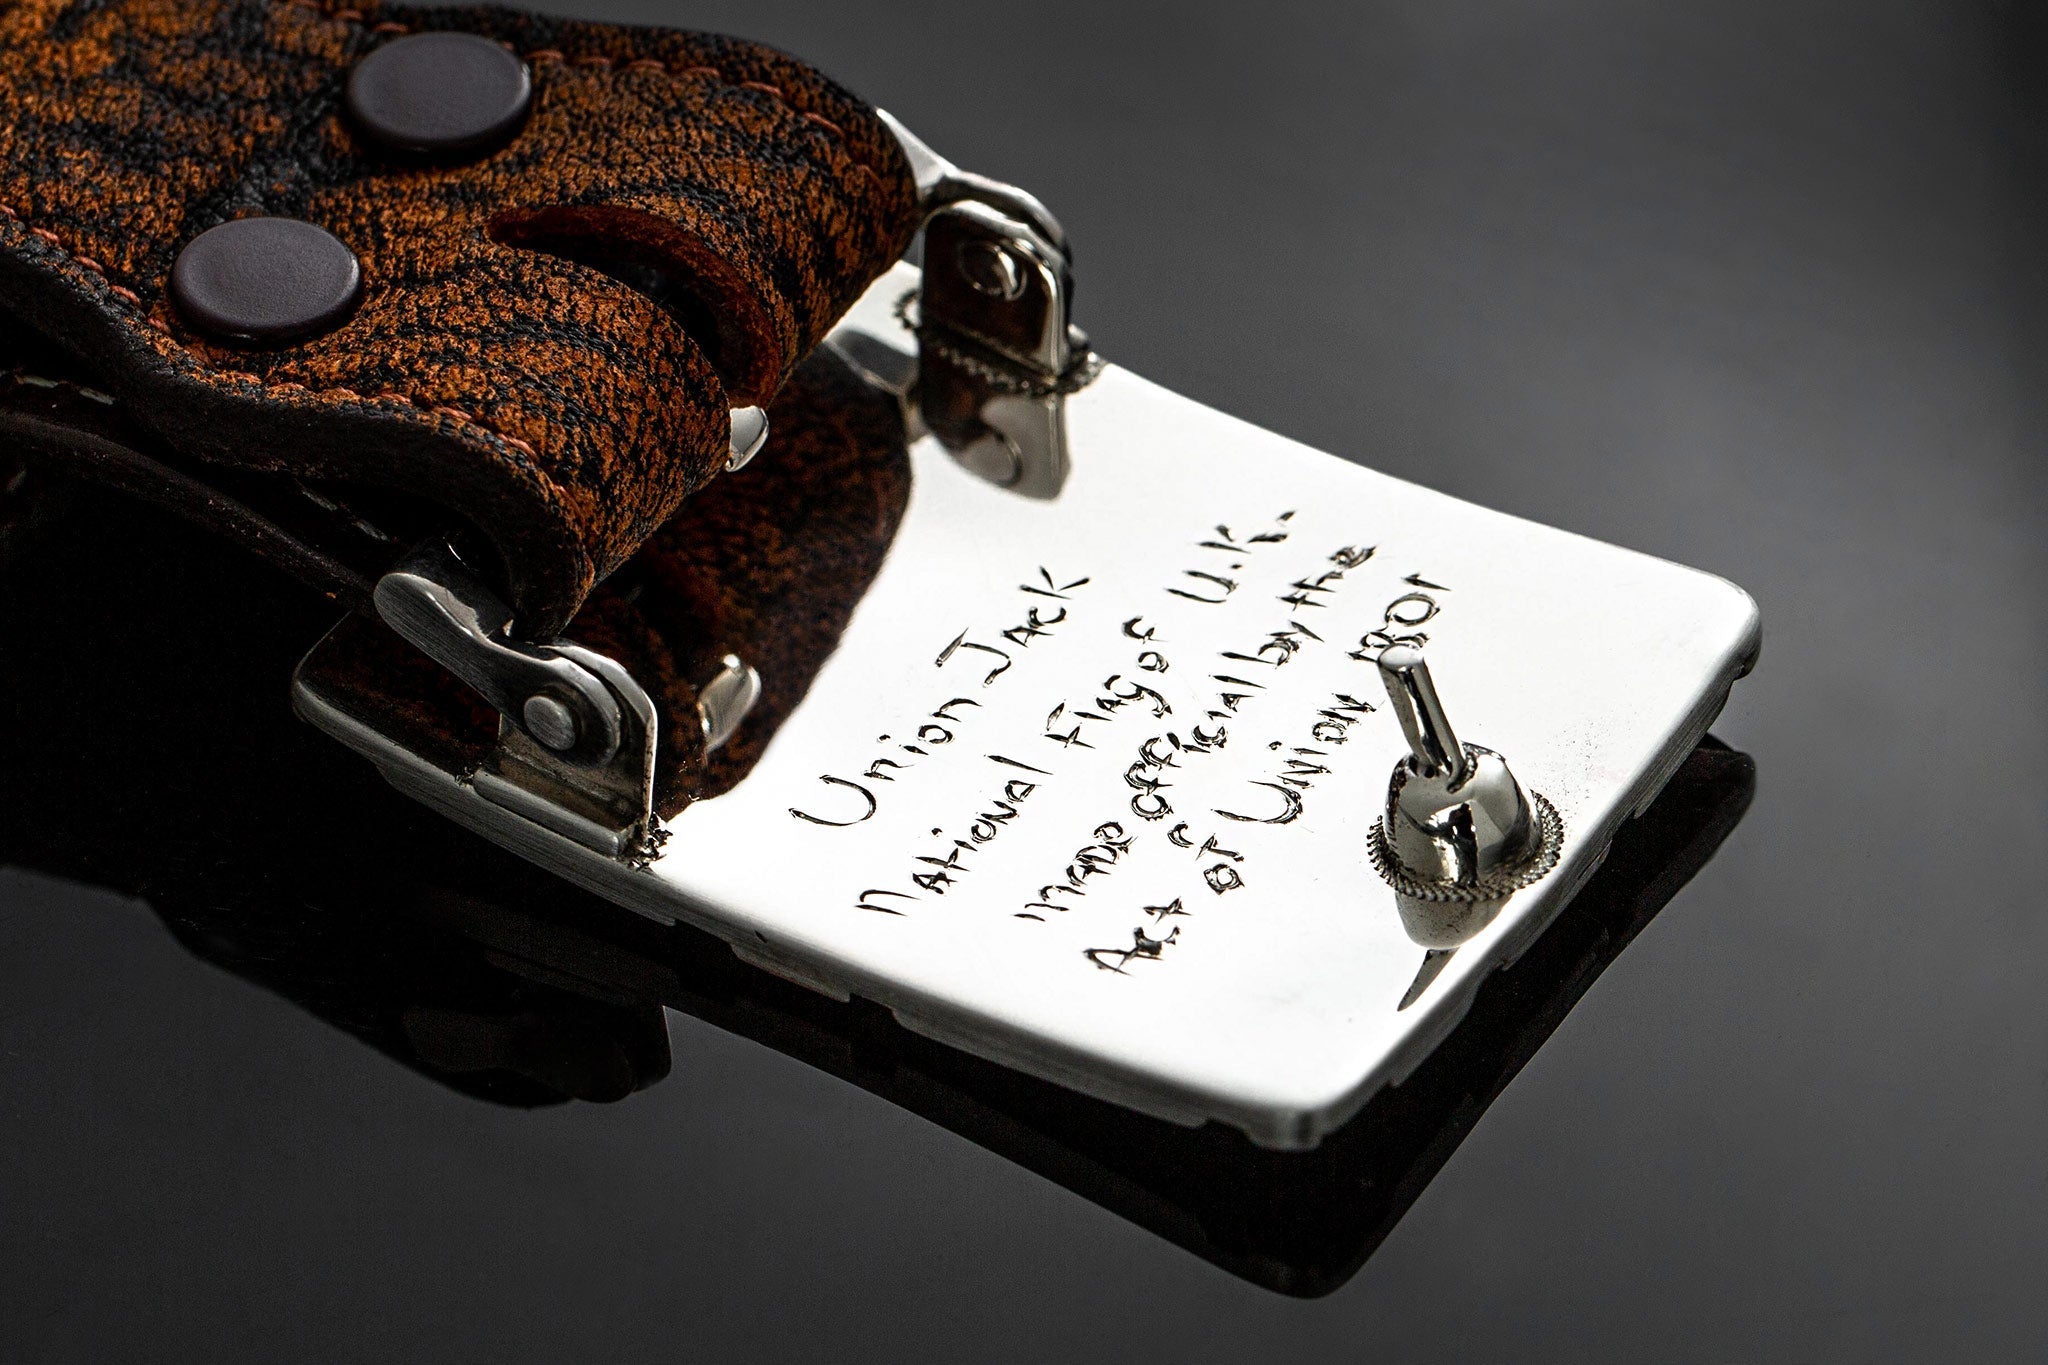 Union Jack
National Flag of U.K.
made official by the
Act of Union 1801